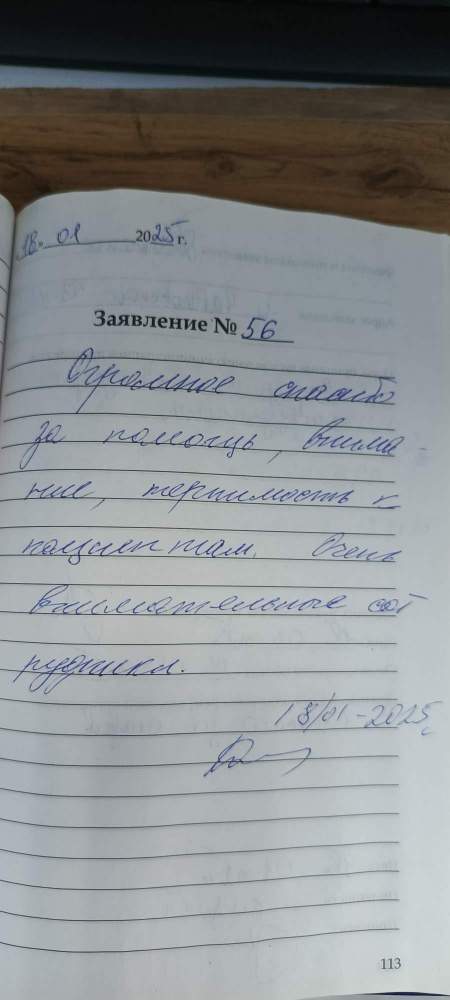 18. 01 2025 г.
Заявление № 56
Огромное спасибо
за помощь, внима-
ние, терпимость к
пациентам. Очень
внимательные сот
рудники.
18/01-2025г
113